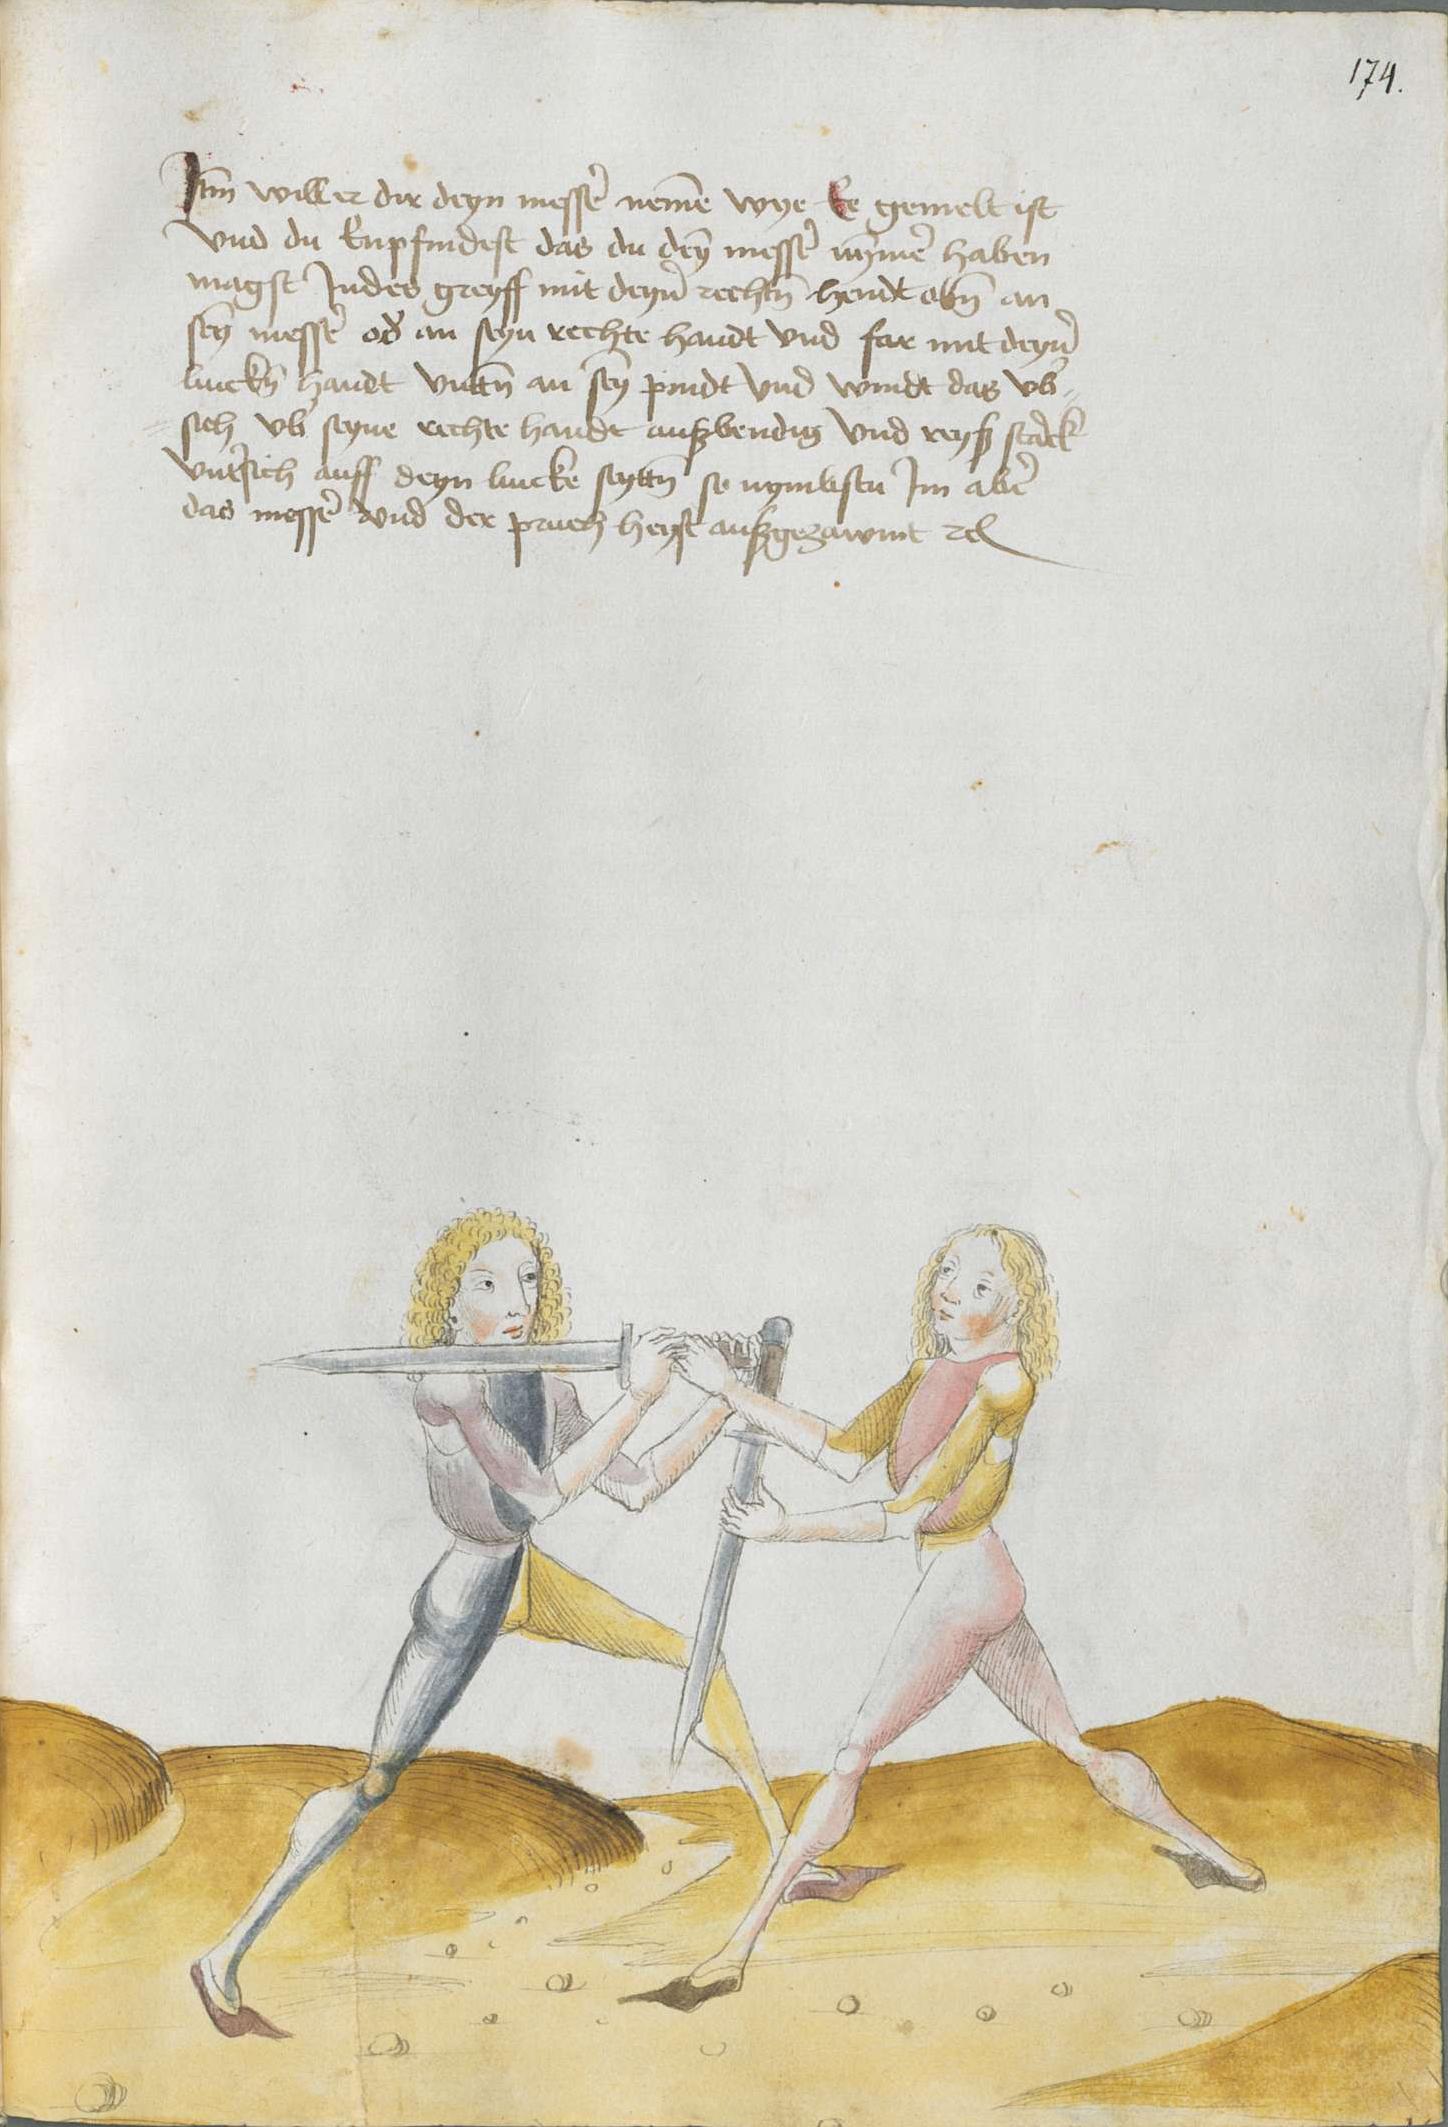 174.
Itm̄ will er dir deyn messẽ nemẽ wye Ee gemelt ist
vnd du Enpfindest das du deȳ messẽ nȳmẽ haben
magst Indes greyff mit deyñ rechtñ hendt obñ an
seȳ messẽ od̃ an seyn rechte handt vnd far mit deyñ
linckñ handt vnttñ an seȳ pindt vnd windt das vb̃-
sich vb̃ seyne rechte handt außbendig vnd reyß starck
vnttersich auff deyn lincke seyttñ so nymbstu Im abẽ
das messẽ vnd der pruch heyst außgezawmt